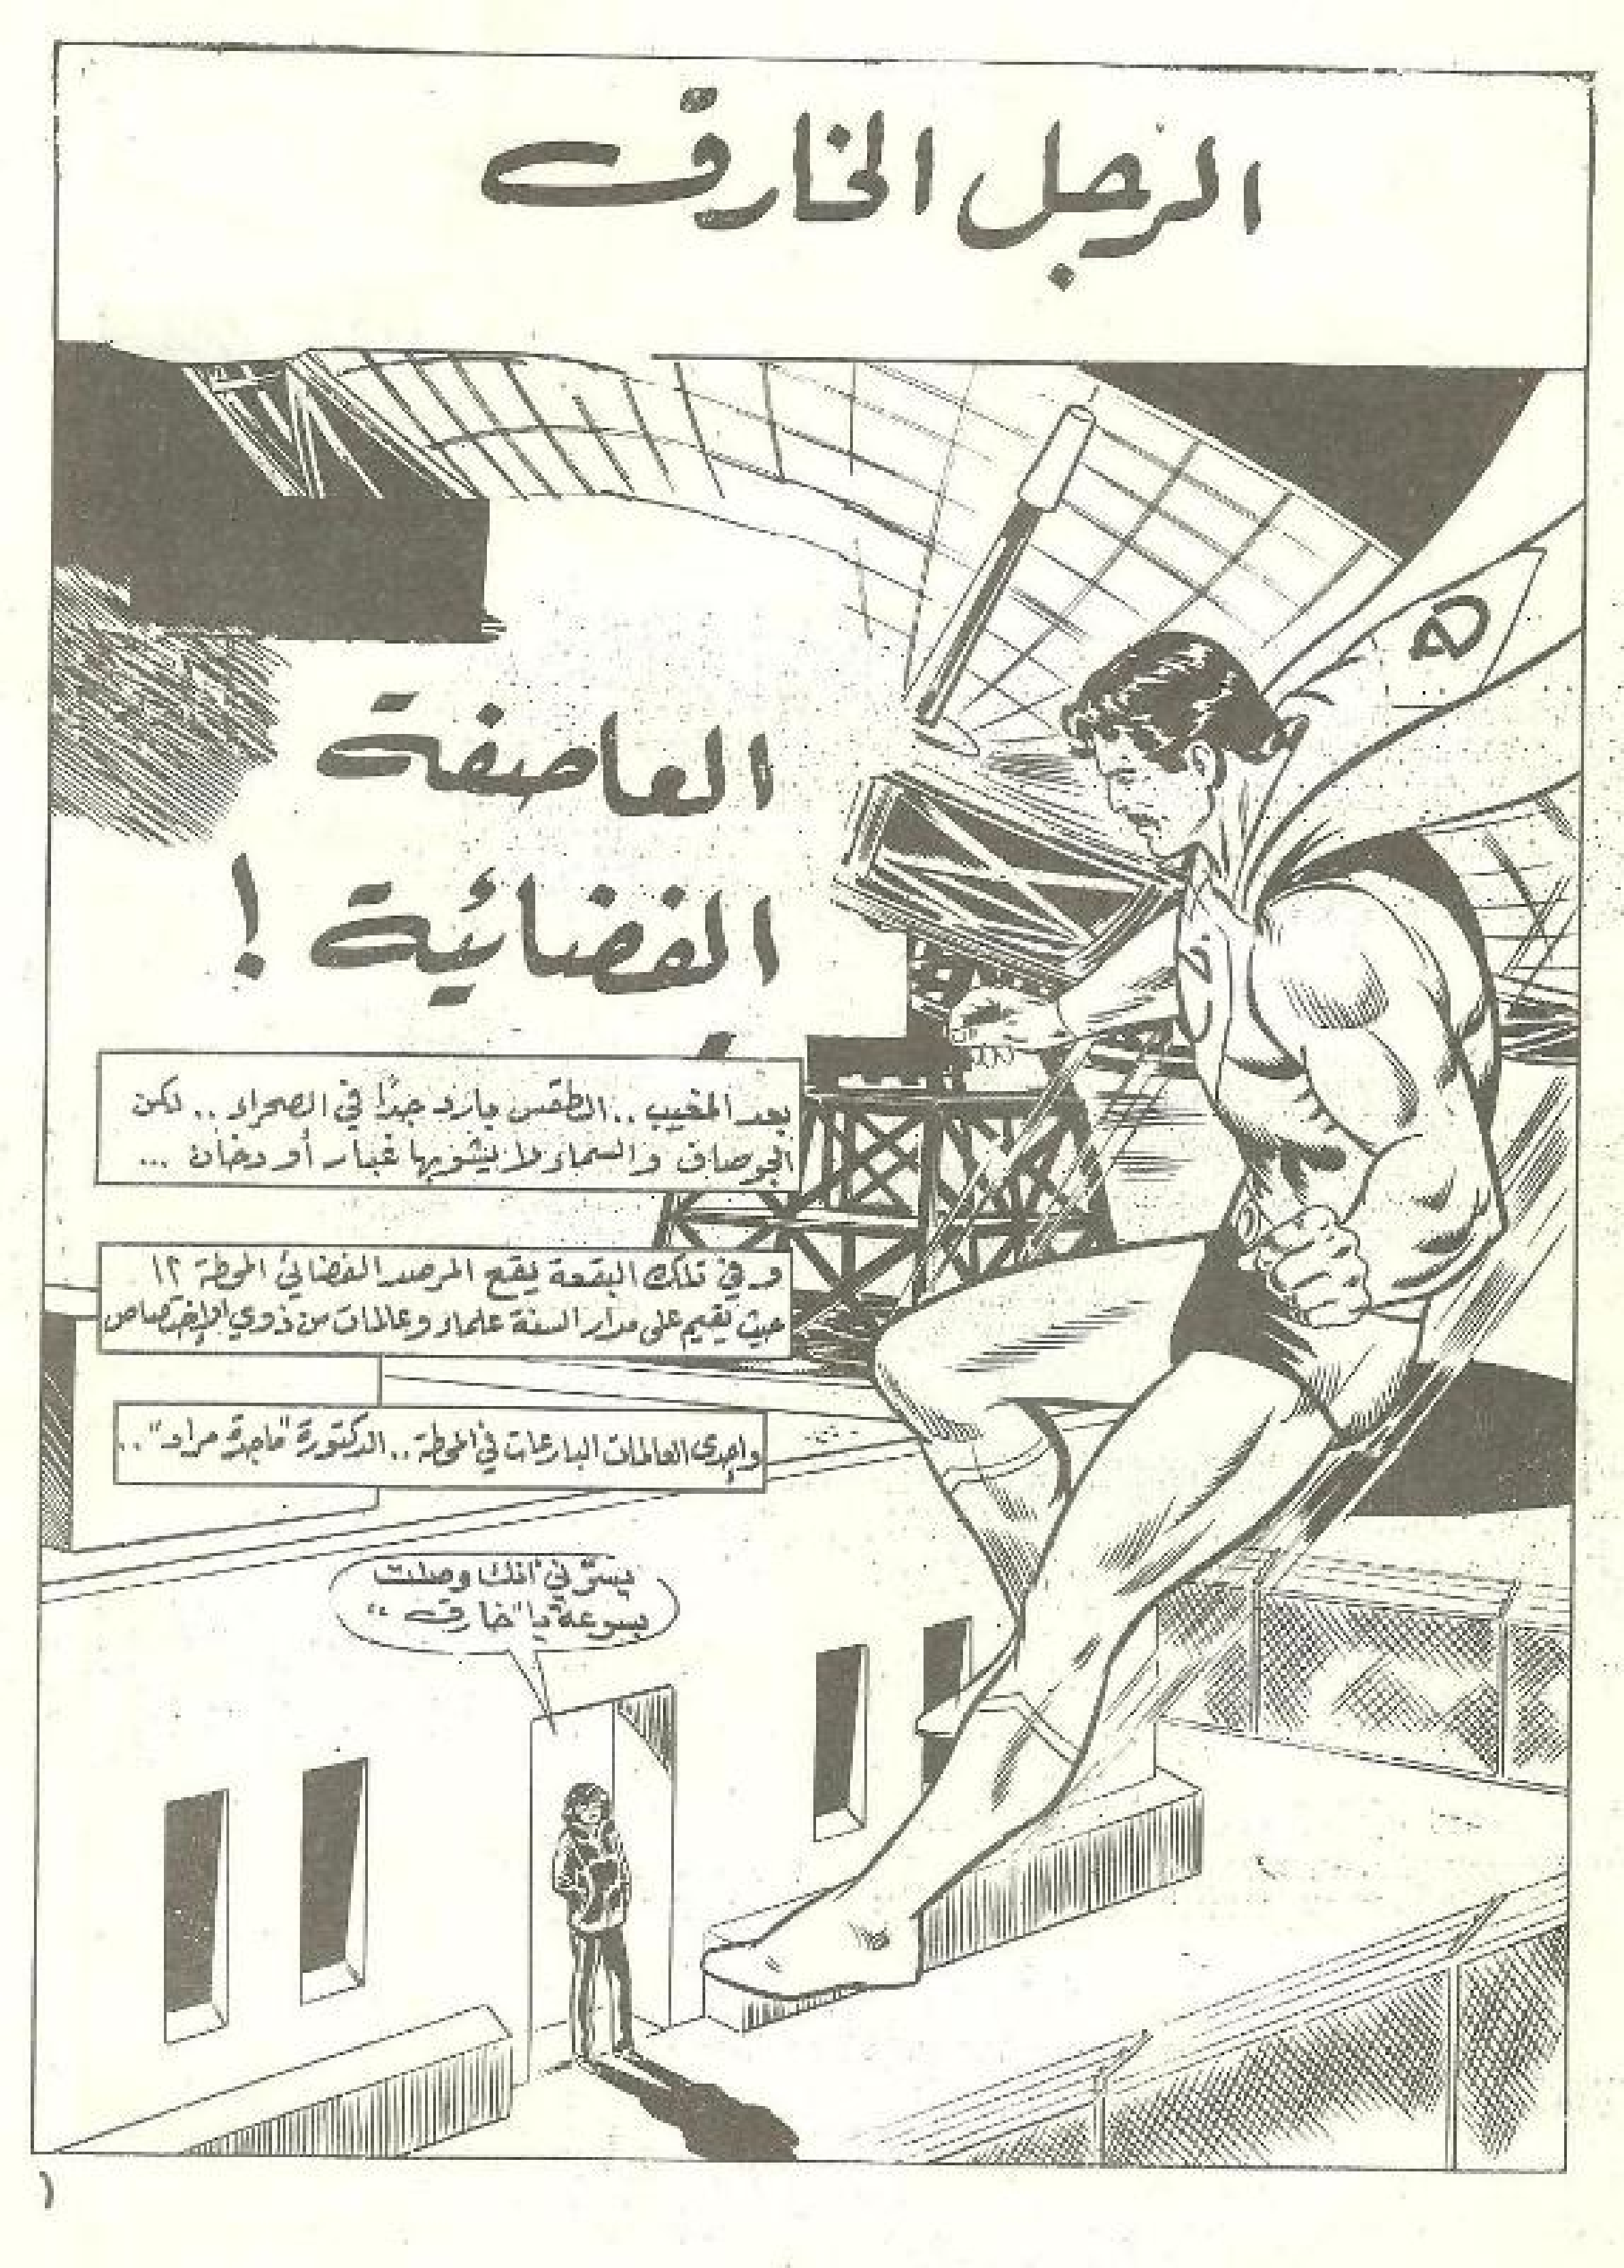 الرجل الخارق
العاصفة
الفضائية !
بعد المغيب .. الطقس بارد جدًا في الصحراء .. لكن
الجو صاف والسماء لا يشوبها غبار أو دخان ...
وفي تلك البقعة يقع المرصد الفضائي المحطة ١٢
حيث يقيم على مدار السنة علماء وعالمات من ذوي الإختصاص
وإحدى العالمات البارعات في المحطة .. الدكتورة "ماجدة مراد" ..
يسرّني أنك وصلت
بسرعة يا "خارق"
١